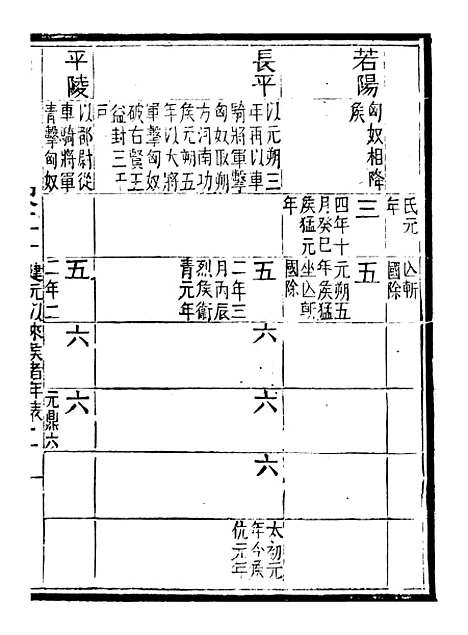 氏元
年
亾斬
國除
若陽
匈奴相降
侯
三
四年十
月癸巳
侯猛元
年
五
元朔五
年侯猛
坐亾斬
國除
長平
以元朔三
年再以車
騎將軍擊
匈奴取朔
方河南功
侯元朔五
年以大將
軍擊匈奴
破右賢王
益封三千
戶
五
二年三
月丙辰
烈侯衛
青元年
六
六
六
太初元
年今侯
伉元年
平陵
以都尉從
車騎將軍
青擊匈奴
五
二年二
六
六
元鼎六
建元以來侯者年表